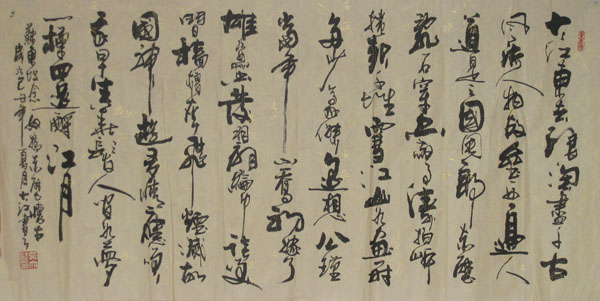 大江東去浪淘盡千古
風流人物故壘西邊人
道是三國周郎赤壁
亂石穿空驚濤拍岸
捲起千堆雪江山如畫一時
多少豪傑遙想公瑾
當年小喬初嫁了
雄姿英發羽扇綸巾談笑
間檣櫓灰飛煙滅故
國神遊多情應笑
我早生華髮人間如夢
一樽還酹江月
蘇東坡念奴嬌赤壁懷古
歲次己丑年夏月